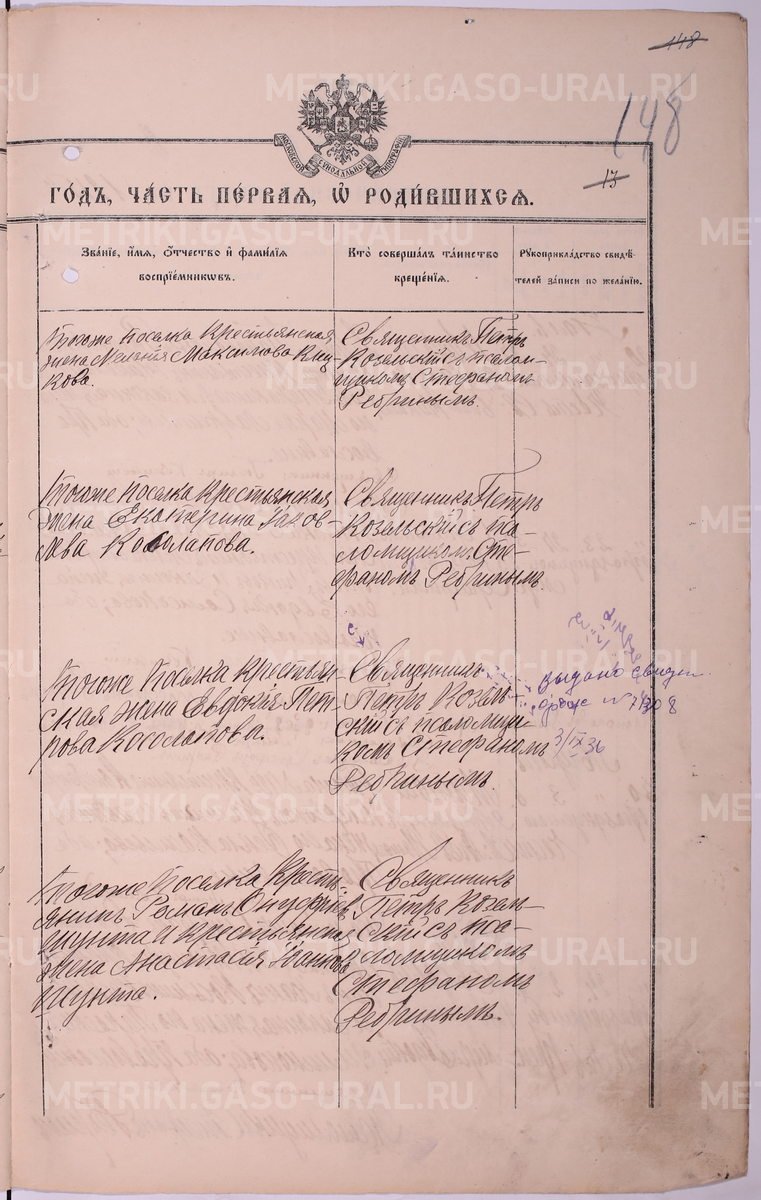 148
148
13
МОСКОВСКОЙ СѴНОДАЛЬНОЙ ТИПОГРАФІИ
ГО́ДЪ, ЧА́СТЬ ПЕ́РВАЯ, Ѡ҆ РОДИ́ВШИХСЯ.
Зва́нїе, и҆́мя, ѻ҆́тчество и҆ фами́лїя
воспрїе́мникѡвъ.
Кто̀ соверша́лъ та́инство
креще́нїя.
Рꙋкоприкла́дство свидѣ́-
телей за́писи по жела́нїю.
Тогоже поселка крестьянская
жена Меланія Максимова
кова.
Священникъ Петръ
Козельскій съ псалом-
щикомъ Стефаномъ
Ребринымъ.
Тогоже поселка крестьянская
жена Екатерина Яков-
лева Косолапова.
Священникъ Петръ
Козельскій съ пса-
ломщикомъ Сте-
фаномъ Ребринымъ.
Тогоже поселка крестьян-
ская жена Евдокія Пет-
рова Косолапова.
Священникъ
Петръ Козель-
скій съ псаломщи-
комъ Стефаномъ
Ребринымъ.
выдано свидет
3/IX 36
Тогоже поселка кресть-
янинъ Романъ Онуфріевъ
Шунта и крестьянская
жена Анастасія Іванова
Шунта.
Священникъ
Петръ Козель-
скій съ пса-
ломщикомъ
Стефаномъ
Ребринымъ.
METRIKI.GASO-URAL.RU